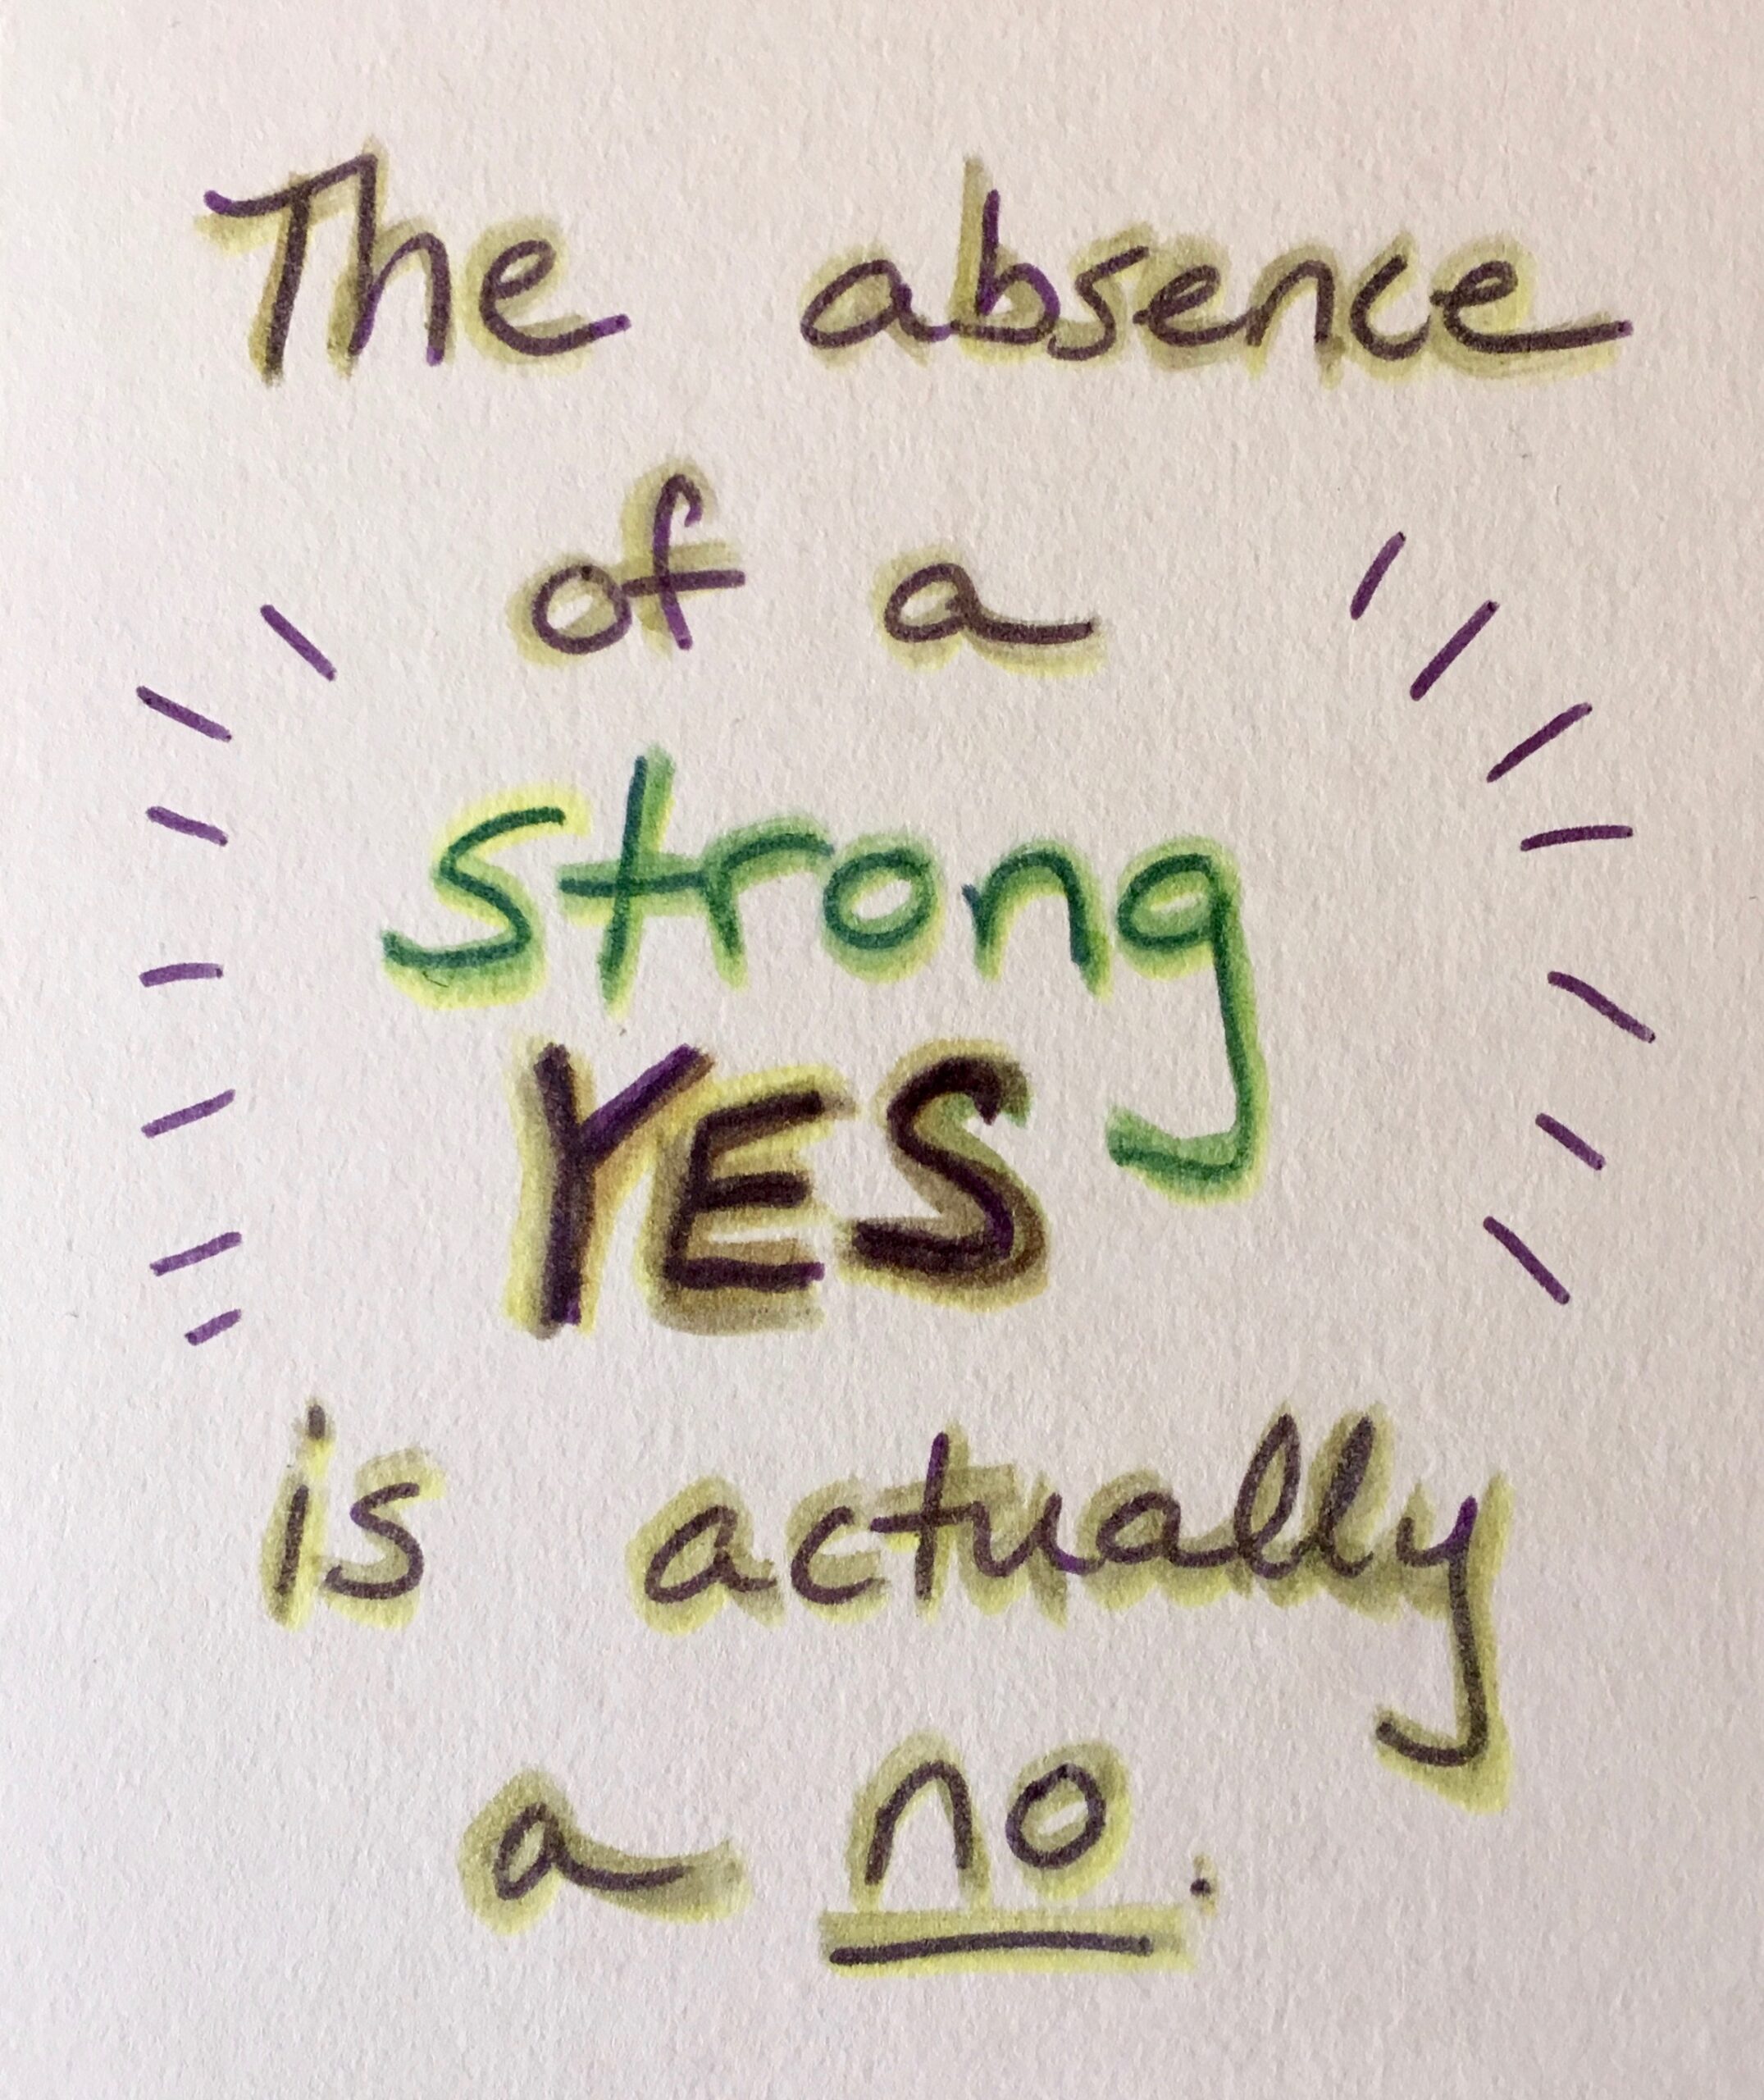 The absence
of a
strong
YES
is actually
a no.